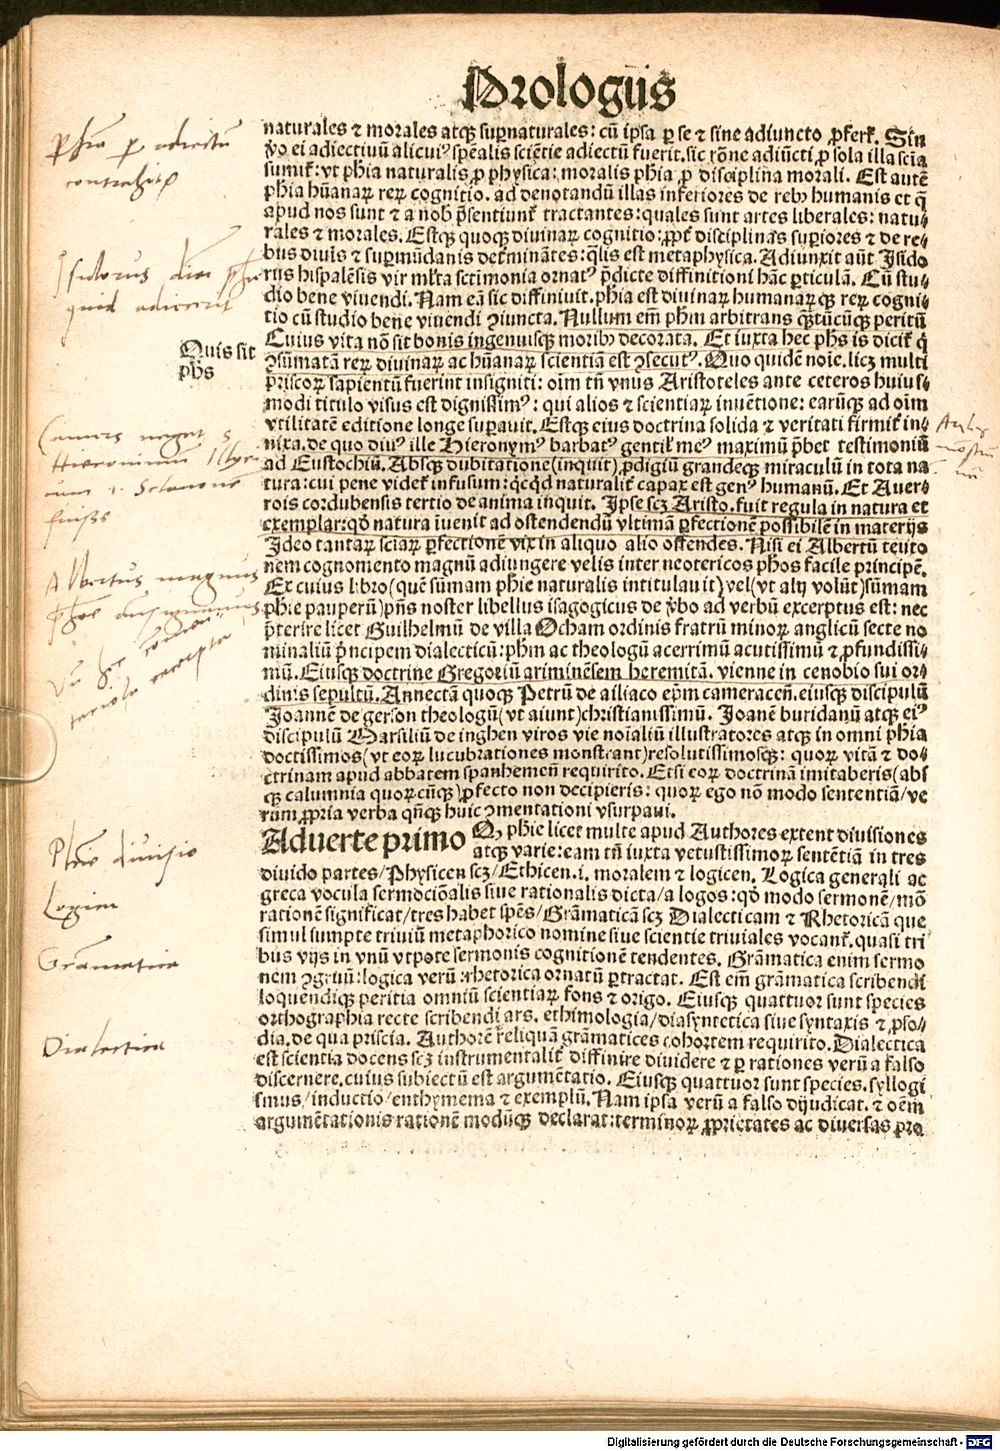 Prologus
naturales ⁊ morales atqꝫ supnaturales: cũ ipsa ꝑ se ⁊ sine adiuncto ꝓfert̃. Sin
ꝟo ei adiectiuũ alicuiꝰ sp̃ealis sciẽtie adiectũ fuerit. sic rõne adiũcti ꝓ sola illa sciã
sumit̃: vt phia naturalis ꝓ physica: moralis phia ꝓ disciplina morali. Est autẽ
phia hũanaꝝ reꝝ cognitio. ad denotandũ illas inferiores de rebꝫ humanis et q̃
apud nos sunt ⁊ a nob̃ p̃sentiunt̃ tractantes: quales sunt artes liberales: natu⸗
rales ⁊ morales. Estqꝫ quoqꝫ diuinaꝝ cognitio: ꝓpt̃ disciplinas supiores ⁊ de re⸗
bus diuis ⁊ supmũdanis det̃minãtes: q̃lis est metaphysica. Adiunxit aũt Isido
rus hispalẽsis vir ml̃ta sctimonia ornatꝰ p̃dicte diffinitioni hãc ꝑticulã. Cũ stu⸗
dio bene viuendi. Nam eã sic diffiniuit. phia est diuinaꝝ humanaꝝqꝫ reꝝ cogni⸗
tio cũ studio bene viuendi ꝯiuncta. Nullum em̃ phm̃ arbitrans q̃tũcũqꝫ peritũ
Cuius vita nõ sit bonis ingenuisqꝫ moribꝫ decorata. Et iuxta hec phs is dicit̃ q̃
Quis sit
phs
ꝯsumatã reꝝ diuinaꝝ ac hũanaꝝ scientiã est ꝯsecutꝰ. Quo quidẽ noĩe. licꝫ multi
p̃riscoꝝ sapientũ fuerint insigniti: oĩm tñ vnus Aristoteles ante ceteros huius⸗
modi titulo visus est dignissimꝰ: qui alios ⁊ scientiaꝝ inuẽtione: earũqꝫ ad oĩm
vtilitatẽ editione longe supauit. Estqꝫ eius doctrina solida ⁊ veritati firmit̃ in⸗
nixa. de quo diuꝰ ille Hieronymꝰ barbatꝰ gentil̃ meꝰ maximũ p̃bet testimoniũ
ad Eustochiũ. Absqꝫ dubitatione (inquit) ꝓdigiũ grandeqꝫ miraculũ in tota na
tura: cui pene videt̃ infusum: q̃cq̃d naturalit̃ capax est genꝰ humanũ. Et Auer⸗
rois cordubensis tertio de anima inquit. Ipse scꝫ Aristo. fuit regula in natura et
exemplar: qđ natura ĩuenit ad ostendendũ vltimã ꝑfectionẽ possibilẽ in materijs
Ideo tantaꝝ sciaꝝ ꝑfectionẽ vix in aliquo alio offendes. Nisi ei Albertũ teuto
nem cognomento magnũ adiungere velis inter neotericos phos facile principẽ.
Ex cuius libro (quẽ sũmam phie naturalis intitulauit) vel (vt alij volũt) sũmam
phie pauperũ) pñs noster libellus isagogicus de ꝟbo ad verbũ excerptus est: nec
p̃terire licet Guilhelmũ de villa Ocham ordinis fratrũ minoꝝ anglicũ secte no
minaliũ p̃ncipem dialecticũ: phm̃ ac theologũ acerrimũ acutissimũ ⁊ ꝓfundissi⸗
mũ. Eiusqꝫ doctrine Gregoriũ ariminẽsem heremitã. vienne in cenobio sui or⸗
dinis sepultũ. Annectã quoqꝫ Petrũ de ailiaco ep̃m cameraceñ. eiusqꝫ discipulũ
Joannẽ de gerson theologũ (vt aiunt) christianissimũ. Joanẽ buridanũ atqꝫ eiꝰ
discipulũ Marsiliũ de inghen viros vie noĩaliũ illustratores atqꝫ in omni phia
doctissimos (vt eoꝝ lucubrationes monstrant) resolutissimosqꝫ: quoꝝ vitã ⁊ do⸗
ctrinam apud abbatem spanhemeñ requirito. Etsi eoꝝ doctrinã imitaberis (abs
qꝫ calumnia quoꝝcũqꝫ) ꝓfecto non decipieris: quoꝝ ego nõ modo sententiã / ve
rum ꝓpria verba q̃nqꝫ huic ꝯmentationi vsurpaui.
Aduerte primo Qꝫ phie licet multe apud Authores extent diuisiones
atqꝫ varie: eam tñ iuxta vetustissimoꝝ sentẽtiã in tres
diuido partes / Physicen scꝫ / Ethicen. i. moralem ⁊ logicen. Logica generali ac
greca vocula sermociõalis siue rationalis dicta / a logos: qđ modo sermonẽ / mõ
rationẽ significat / tres habet sp̃es / Grãmaticã scꝫ Dialecticam ⁊ Rhetoricã que
simul sumpte triuiũ metaphorico nomine siue scientie triuiales vocant̃. quasi tri
bus vijs in vnũ vtpote sermonis cognitionẽ tendentes. Grãmatica enim sermo
nem ꝯgruũ: logica verũ: rhetorica ornatũ ꝑtractat. Est em̃ grãmatica scribendi
loquendiqꝫ peritia omniũ scientiaꝝ fons ⁊ origo. Eiusqꝫ quattuor sunt species
orthographia recte scribendi ars. ethimologia / diasyntetica siue syntaxis ⁊ ꝓso⸗
dia. de qua priscia. Authorẽ reliquã grãmatices cohortem requirito. Dialectica
est scientia docens scꝫ instrumentalit̃ diffinire diuidere ⁊ ꝑ rationes verũ a falso
discernere. cuius subiectũ est argumẽtatio. Eiusqꝫ quattuor sunt species. syllogi
smus / inductio / enthymema ⁊ exemplũ. Nam ipsa verũ a falso dijudicat. ⁊ oẽm
argumẽtationis rationẽ modũqꝫ declarat: terminoꝝ ꝓprietates ac diuersas ꝓro
Phia ꝑ adiectũ
contrahit̃
Isidorus
quid adiecerit
Hieronimum
Albertus magnus
Phie diuisio
Logica
Grãmatica
Dialectica
Digitalisierung gefördert durch die Deutsche Forschungsgemeinschaft - DFG